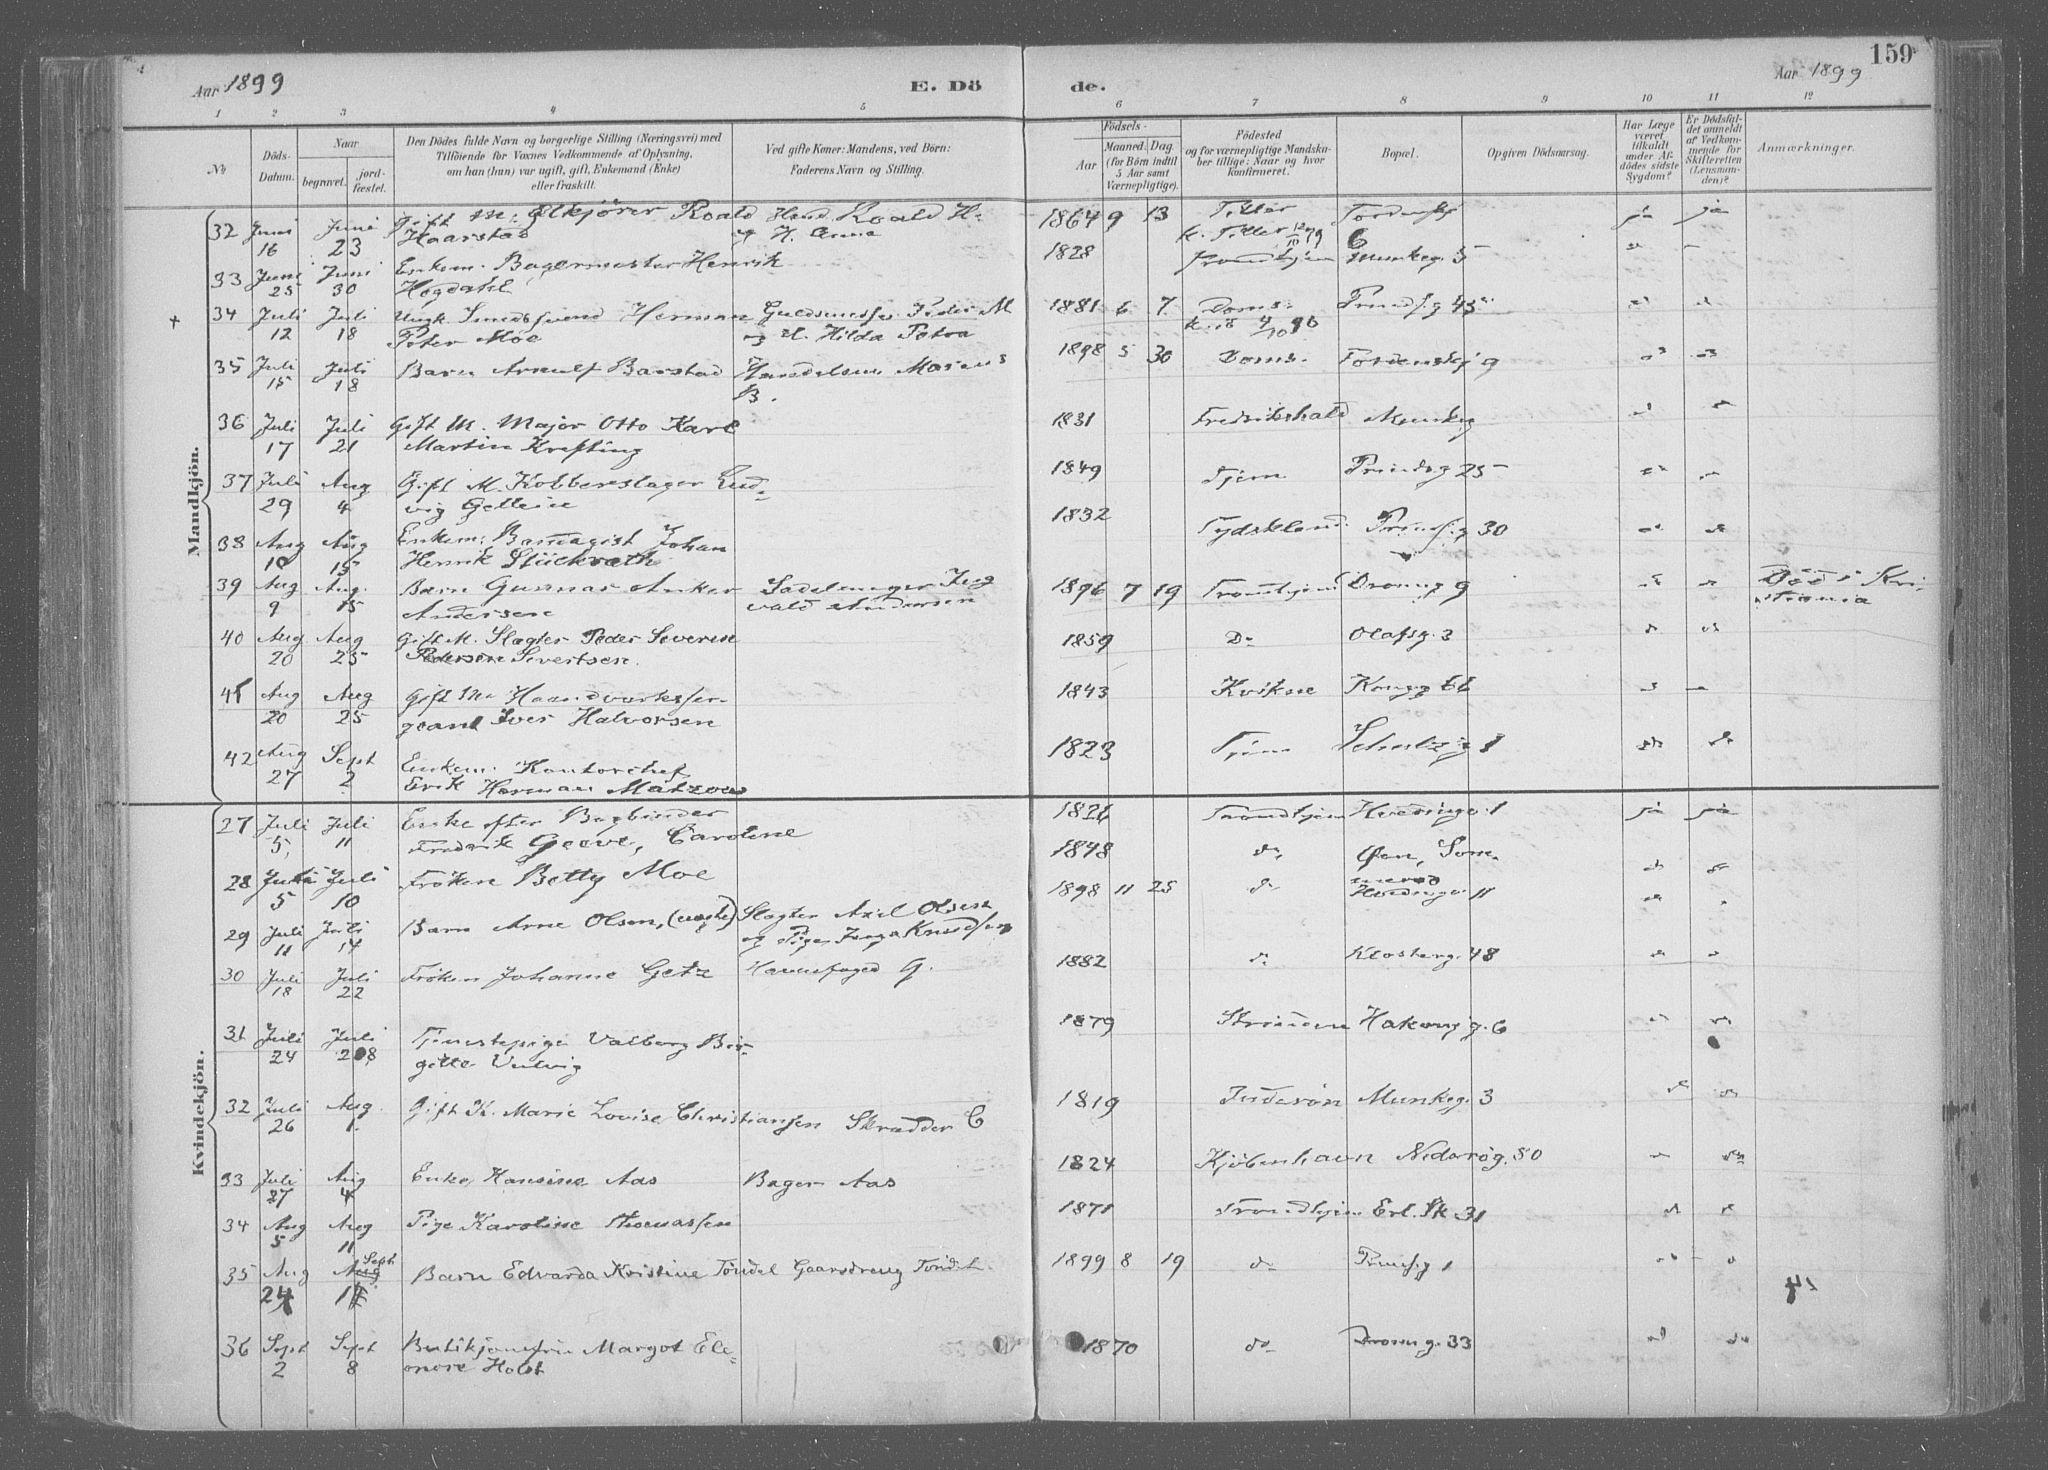 159
Aar 1899
E. Dö
de.
Aar 1899
1 2 3 4 5 6 7 8 9 10 11 12
No
Döds-Datum.
Naar
begravet.
jord-fæstet.
Den Dödes fulde Navn og borgerlige Stilling (Næringsvei) med
Tilföiende for Voxnes Vedkommende af Oplysning,
om han (hun) var ugift, gift, Enkemand (Enke)
eller fraskilt.
Ved gifte Koner: Mandens, ved Börn:
Faderens Navn og Stilling.
Födsels-
Aar
Maaned. Dag.
(for Börn indtil
5 Aar samt
Værnepligtige).
Födested
og for værnepligtige Mandska-
ber tillige: Naar og hvor
konfirmeret.
Bopæl.
Opgiven Dödsaarsag.
Har Læge
været
tilkaldt
under Af-
dödes sidste
Sygdom?
Er Dödsfal-
det anmeldt
af Vedkom-
mende for
Skifteretten
(Lensman-
den)?
Anmærkninger.
Mandkjön.
32 Juni 16 Juni 23 Gift M: Roald Haarstad Roald H. H. Anna 1864 9 13 Tiller k. Tiller 12/10 79 Tordenskj 6 ja ja
33 Juni 25 Juni 30 Enkem. Bagermester Henrik Høgdahl 1828 Trondhjem Munkeg. 5
34 Juli 12 Juli 18 Ungk. Smedsvend Herman Peter Moe Guldsmedsv. Peder M og H. Hilda Petra 1881 6 7 Doms. 4/10 96 Prinds.g 45
35 Juli 15 Juli 18 Barn Arnulf Barstad Handelsm. Marius B. 1898 5 30 Doms. Tordenskj 9
36 Juli 17 Juli 21 Gift M. Major Otto Karl Martin Krefting 1831 Fredrikshald Munkeg
37 Juli 29 Aug 4 Gift M. Kobberslager Ludvig Gellein 1849 Tjem Prindsg 25
38 Aug 10 Aug 15 Enkem: Johan Henrik Stückrath 1832 Tydskland Prinds.g 30
39 Aug 9 Aug. 15 Barn Gunnar Anker Andersen Sadelmager Ingvald Andersen 1896 7 19 Trondhjem Dronng 9 Död i Kristiania
40 Aug 20 Aug 25 Gift M. Slagter Peder Severin Pedersen Sivertsen. 1859 Do Olafsg. 3
41 Aug 20 Aug 25 Gift M. Haandværksser-
geant Iver Halvorsen 1843 Kvikne Kongg 66
42 Aug 27 Sept 2 Enkem. Kontorchef Erik Herman Matzow 1823 Tjem Schultzg 1
Kvindekjön.
27 Juli 5, Juli 11 Enke efter Bogbinder Fredrik Greve, Caroline 1821 Trondhjem Hvedingsv. 1 ja ja
28 Juli 5 Juli 10 Fröken Betty Moe 1848 do, Øen, Sommerro
29 Juli 11 Juli 14 Barn Arne Olsen, (uægte) Slagter Axel Olsen og Pige Inga Knudsen 1898 11 25 do Hvedingsv. 11
30 Juli 18 Juli 22 Fröken Johanne Getz Havnefoged G. 1882 do Klosterg. 48
31 Juli 24 Juli 28 Tjenestepige Valborg Birgitte Vulvig 1879 Strinden Hakong g. 6
32 Juli 26 Aug. 1. Gift K. Marie Lovise Christiansen Skrædder C 1819 Inderøen Munkeg. 3
33 Juli 27 Aug 4 Enke Hansine Aas Bager Aas 1824 Kjöbenhavn Nidarög. 50
34 Aug 5 Aug 11 Pige Karoline Thomassen 1871 Trondhjem Erl. Sk. 31
35 Aug 24 Sept 1 Barn Edvarda Kristine Tøndel Gaardsdreng Tøndel. 1899 8 19 do Prinsg 1
36 Sept 2 Sept 8 Butikjomfru Margot Eleonore Holst 1870 do Dronng. 33